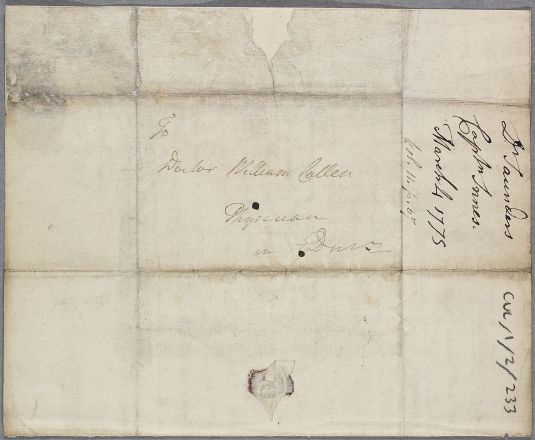 To
Doctor William Cullen
Physician
in
Dr Saunders
Captn Innes.
March 4 1775
CUL/1/2/233